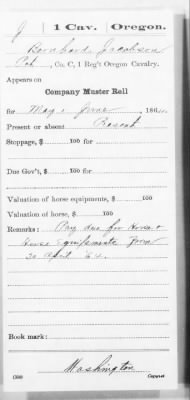 J | 1 Cav. | Oregon.
Bernhard Jacobson
Pvt, Co. C, 1 Reg't Oregon Cavalry.
Appears on
Company Muster Roll
for May & June, 1864.
Present or absent Present
Stoppage, $ 100 for
Due Gov't, $ 100 for
Valuation of horse equipments, $ 100
Valuation of horse, $ 100
Remarks: Pay due for Horse &
Horse Equipments from
30 April 64.
Book mark:
Washington
Copyist.